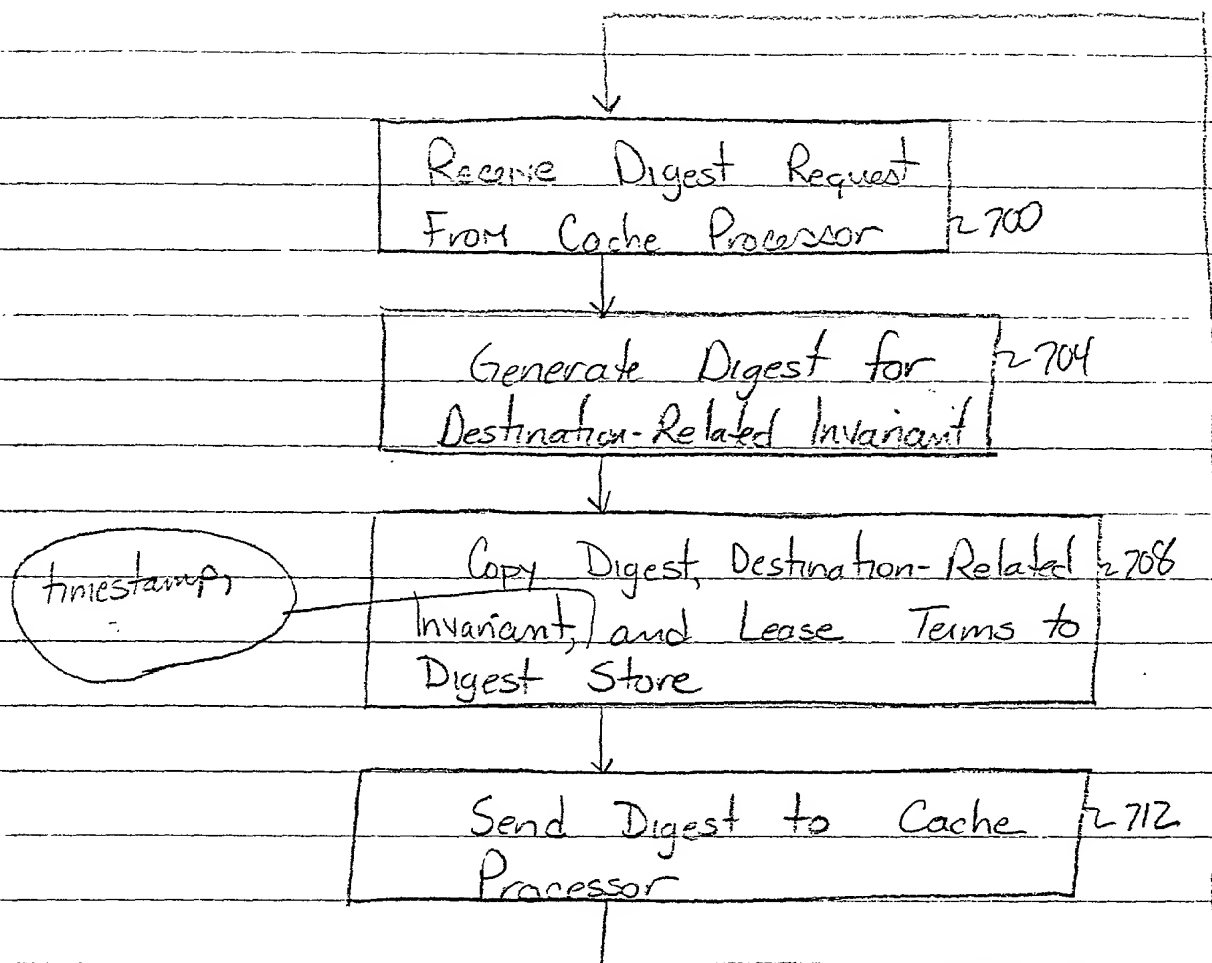 Receive Digest Request
From Cache Processor 700
Generate Digest for 704
Destination-Related Invariant
timestamp,
Copy Digest, Destination-Related 708
Invariant, and Lease Terms to
Digest Store
Send Digest to Cache 712
Processor